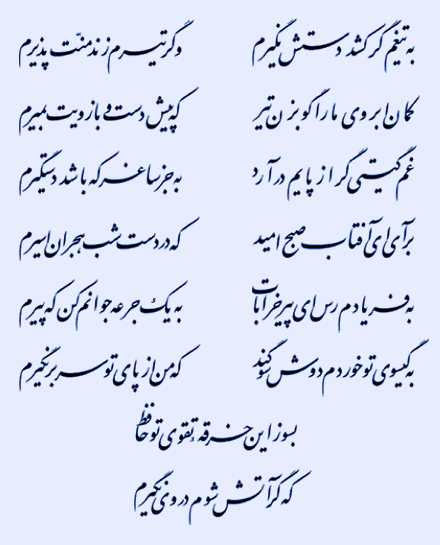 به تیغم گر کشد دستش نگیرم وگر تیرم زند منت پذیرم
کمان ابروی ما را گو بزن تیر که پیش دست و بازویت بمیرم
غم گیتی گر از پایم درآرد به جز ساغر که باشد دستگیرم
برآی ای آفتاب صبح امید که در دست شب هجران اسیرم
به فریادم رس ای پیر خرابات به یک جرعه جوانم کن که پیرم
به گیسوی تو خوردم دوش سوگند که من از پای تو سر بر نگیرم
بسوز این خرقه تقوی تو حافظ
که گر آتش شوم در وی نگیرم